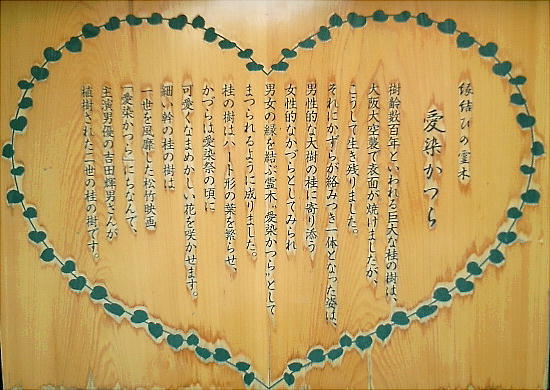 縁結びの霊木
愛染かつら
樹齢数百年といわれる巨大な桂の樹は、
大阪大空襲で衣面が焼けましたが、
こうして生き残りました。
それにかずらが絡みつき一体となった姿は、
男性的な大樹の桂に寄り添う
女性的なかづらとしてみられ
男女の縁を結ぶ霊木“愛染かつら”として
まつられるように成りました。
桂の樹はハート形の葉を繁らせ、
かづらは愛染祭の頃に
可愛くなまめかしい花を咲かせます。
細い幹の桂の樹は
一世を風靡した松竹映画
「愛染かつら」にちなんで、
主演男優の吉田輝男さんが
植樹された二世の桂の樹です。